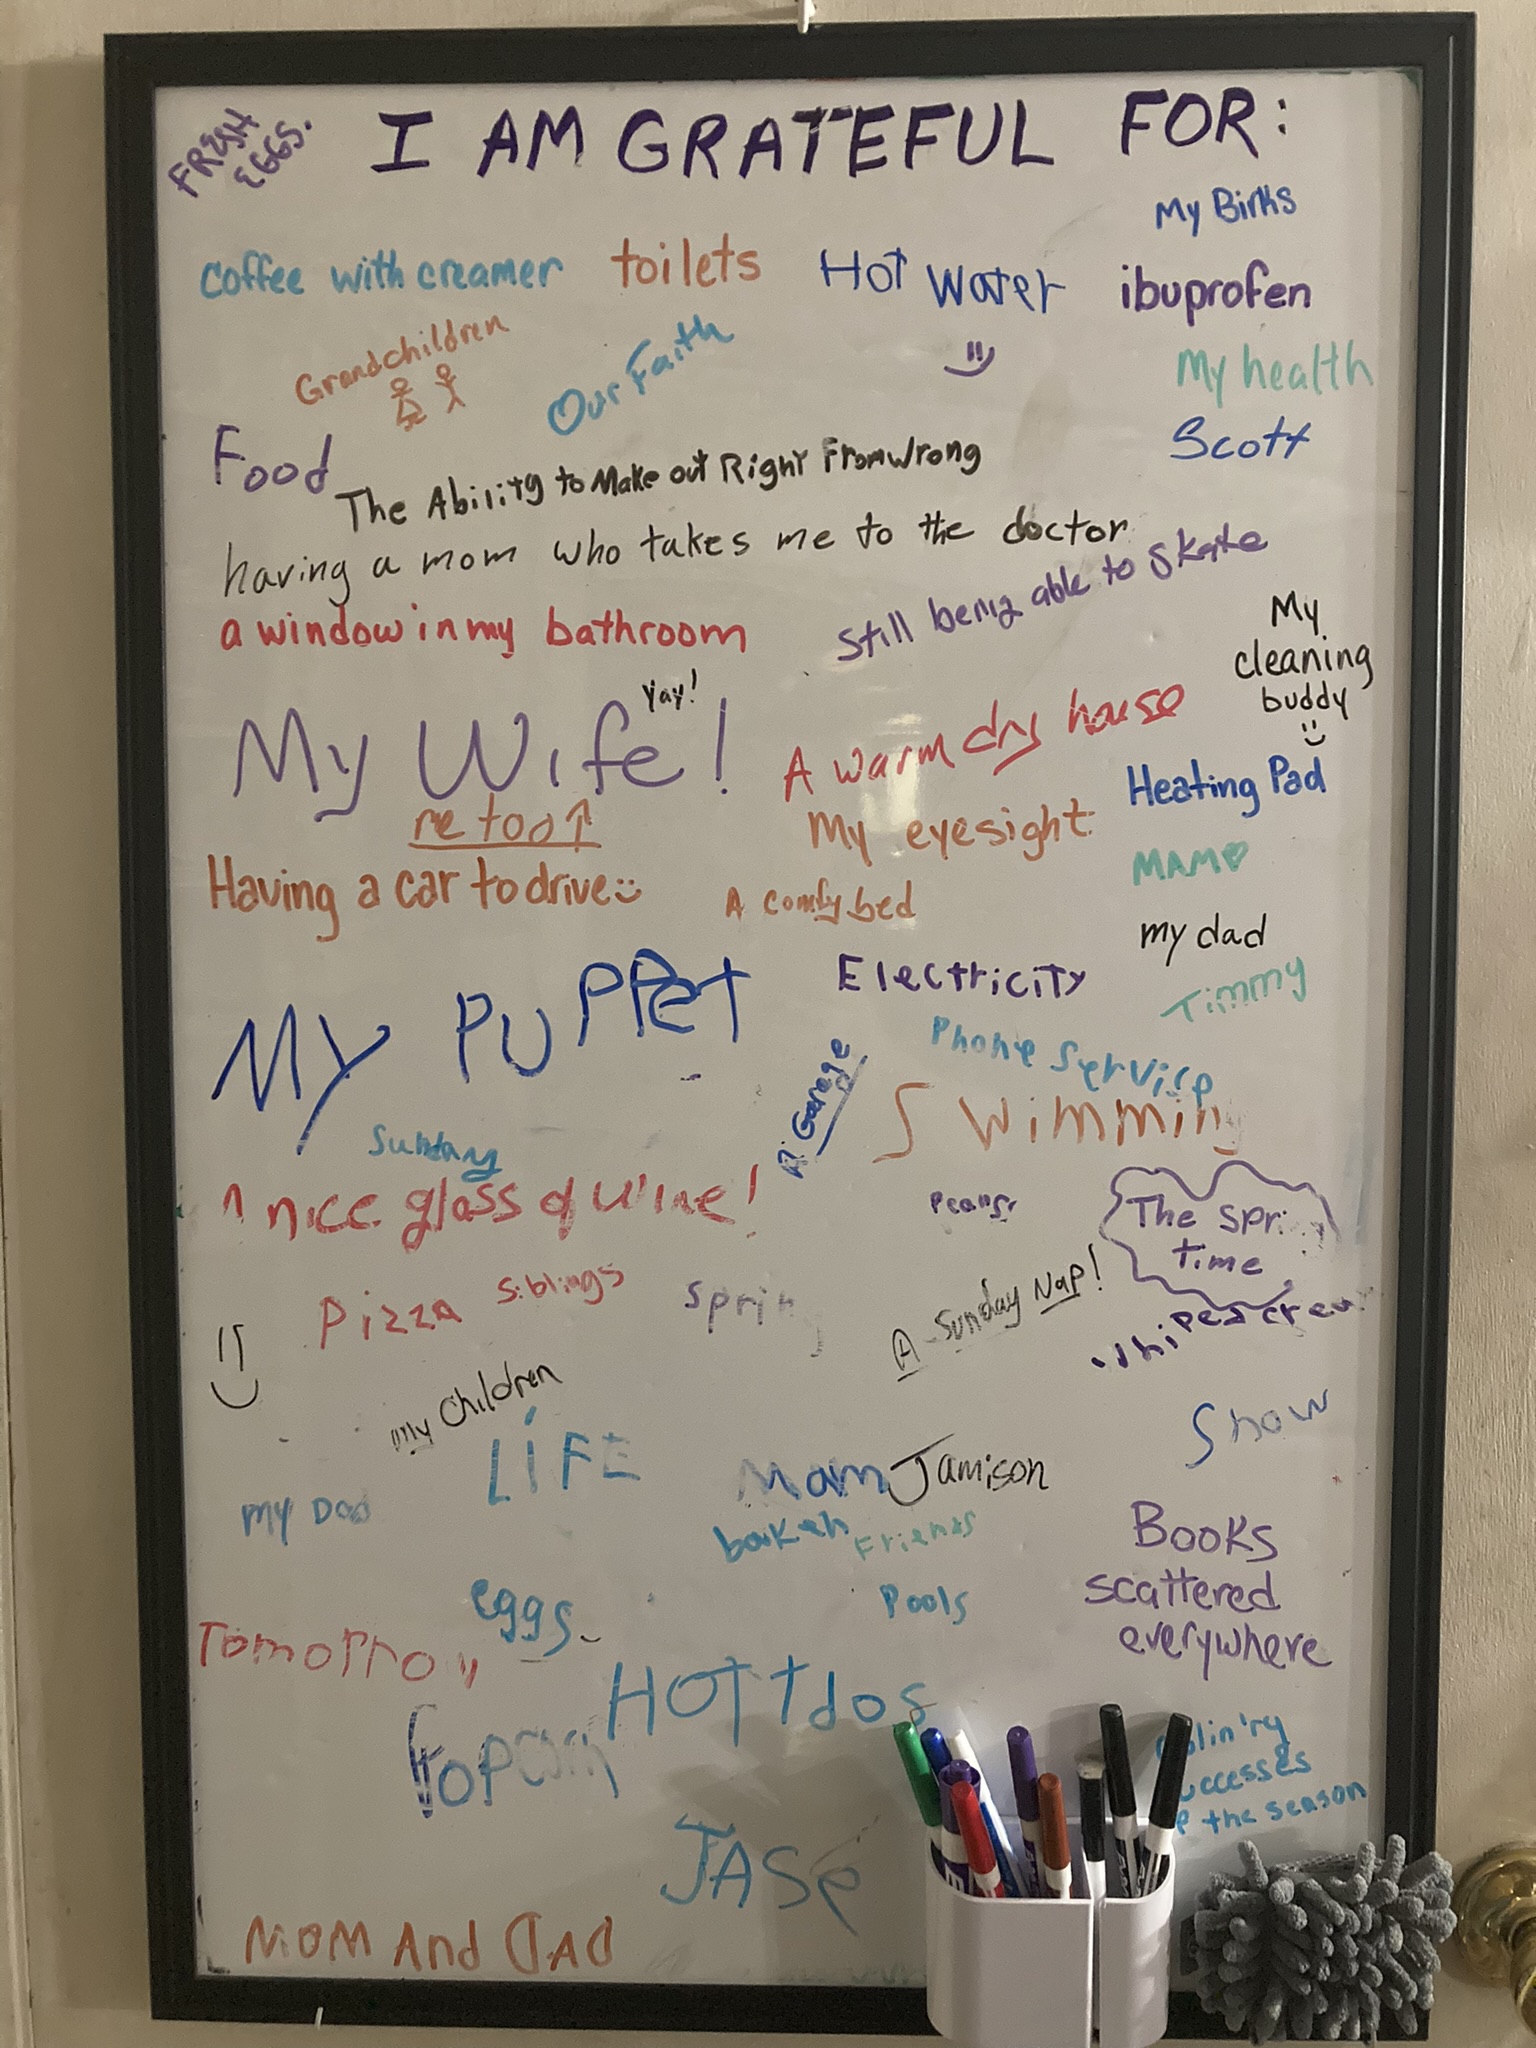 FRESH
EGGS.
I AM GRATEFUL FOR:
My Birks
Coffee with creamer
toilets
Hot Water
ibuprofen
Grandchildren
Our Faith
My health
Scott
Food
The Ability to Make out Right From Wrong
having a mom who takes me to the doctor
Still being able to skate
a window in my bathroom
My
cleaning
buddy
Yay!
My Wife!
A warm dry house
Heating Pad
me too
My eyesight
MAM
Having a car to drive
A comfy bed
my dad
MY PUPPet
Electricity
Timmy
Phone Service
A Garage
Swimming
Sunday
A nice glass of wine!
The spring
time
Pizza
siblings
spring
A Sunday Nap!
my Children
LiFE
Snow
Mom
Jamison
my Dad
Friends
Books
scattered
everywhere
eggs
Pools
Tomorrow
HOTTdos
Popcorn
the season
JASe
MOM And DAD